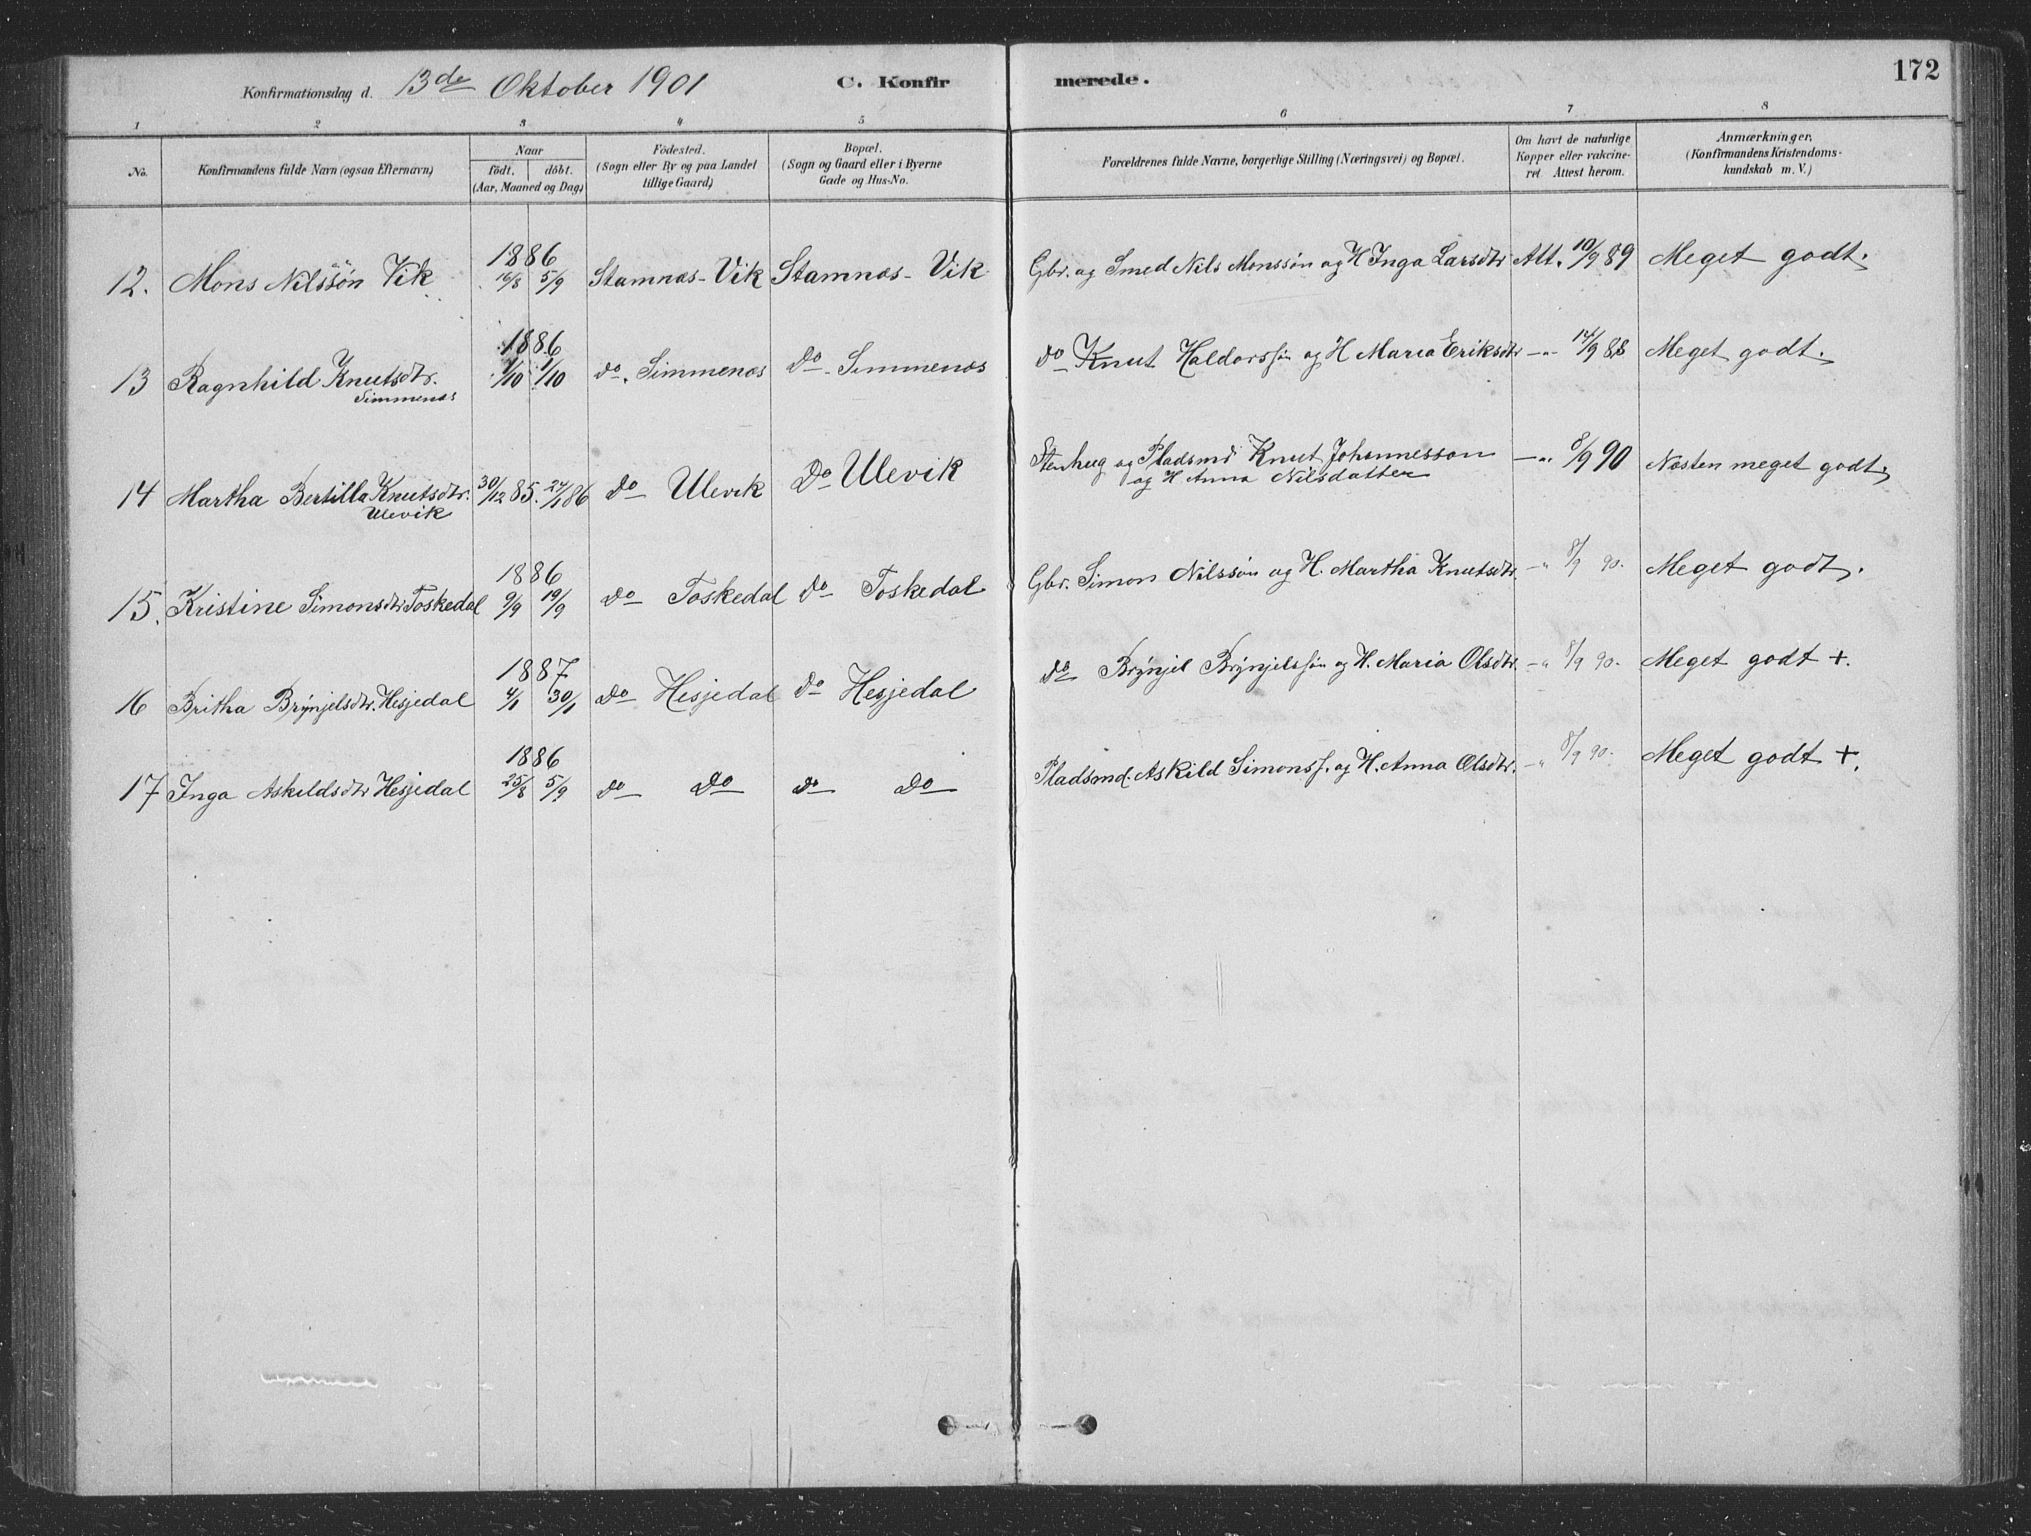 Konfirmationsdag d. 13de Oktober 1901 C. Konfirmerede. 172
1 2 3 4 5 6 7 8
No. Konfirmandens fulde Navn (ogsaa Efternavn) Naar födt. döbt. (Aar, Maaned og Dag) Födested. (Sogn eller By og paa Landet tillige Gaard) Bopæl. (Sogn og Gaard eller i Byerne Gade og Hus-No. Forældrenes fulde Navne, borgerlige Stilling (Næringsvei) og Bopæl. Om havt de naturlige Kopper eller vakcineret Attest herom. Anmærkninger. (Konfirmandens Kristendomskundskab m. V.)
12. Mons Nilssön Vik 1886 16/8 5/9 Stamnæs - Vik Stamnæs - Vik Gbr. og Smed Nils Monssön og H Inga Larsdtr Att. 10/9 89 Meget godt.
13 Ragnhild Knutsdtr. Simmenæs 1886 1/10 1/10 do. Simmenæs do - Simmenæs do Knut Haldorssön og H Maria Eriksdtr —"— 12/9 88 Meget godt.
14 Martha Bertilla Knutsdtr. Ulevik 30/12 85. 24/1 86 do Ulevik Do Ulevik Stenhug og Pladsmd Knut Johannesson og H Anna Nilsdatter —"— 8/9 90 Næsten meget godt.
15. Kristine Simonsdtr Toskedal 1886 9/9 19/9 do Toskedal do Toskedal Gbr. Simon Nilssön og H. Martha Knutsdtr. —" 8/9 90. Meget godt.
16 Britha Brynjelsdtr. Hesjedal 1887 4/1 30/1 do Hesjedal do Hesjedal do Brynjel Brynjelssön og H. Maria Olsdtr. —" 8/9 90. Meget godt +.
17 Inga Askildsdtr Hesjedal 1886 25/8 5/9 do Do do Do Pladsmd. Askild Simonss. og H. Anna Olsdtr. —" 8/9 90. Meget godt +.